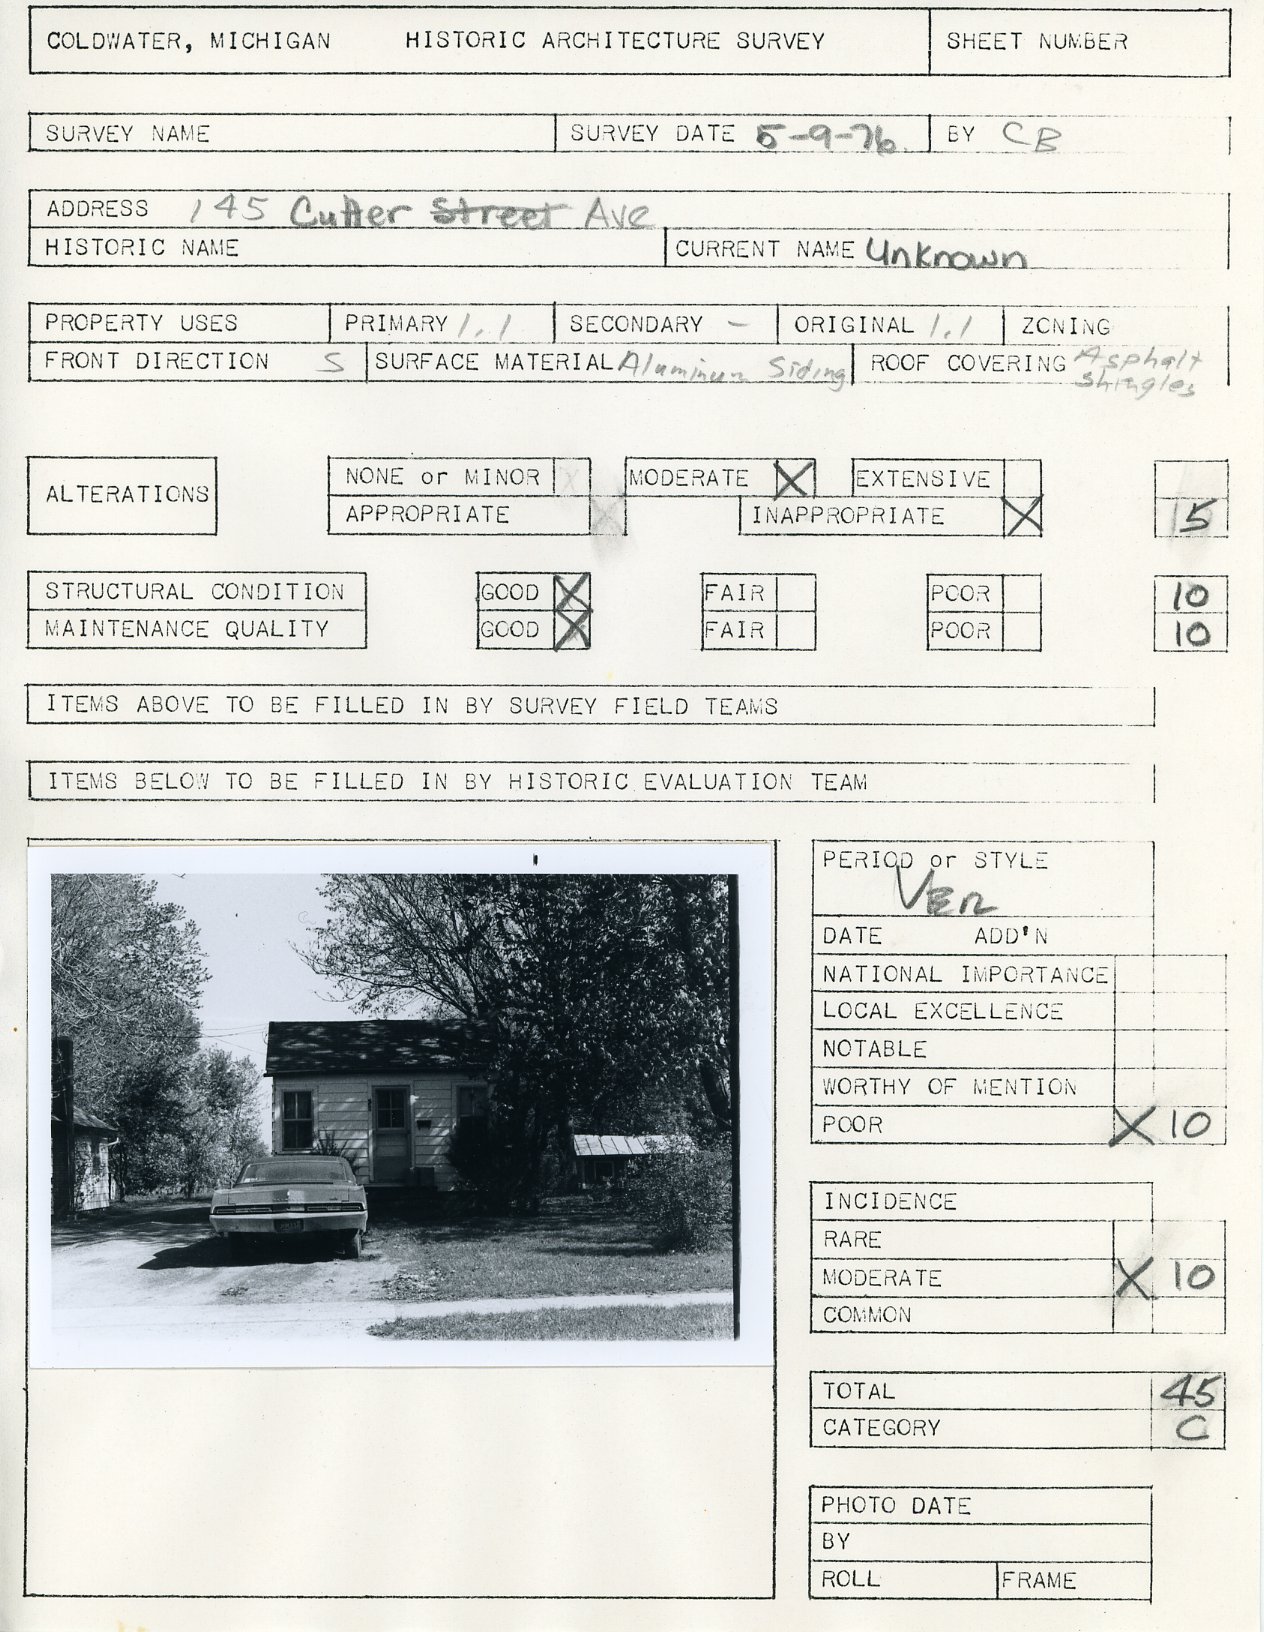 COLDWATER, MICHIGAN HISTORIC ARCHITECTURE SURVEY SHEET NUMBER
SURVEY NAME SURVEY DATE 5-9-76. BY CB
ADDRESS 145 Cutter Street Ave
HISTORIC NAME CURRENT NAME Unknown
PROPERTY USES PRIMARY 1.1 SECONDARY - ORIGINAL 1.1 ZONING
FRONT DIRECTION S SURFACE MATERIAL Aluminum Siding ROOF COVERING Asphalt
Shingles
ALTERATIONS NONE or MINOR MODERATE X EXTENSIVE
APPROPRIATE INAPPROPRIATE X 5
STRUCTURAL CONDITION GOOD X FAIR POOR 10
MAINTENANCE QUALITY GOOD X FAIR POOR 10
ITEMS ABOVE TO BE FILLED IN BY SURVEY FIELD TEAMS
ITEMS BELOW TO BE FILLED IN BY HISTORIC EVALUATION TEAM
PERIOD or STYLE
VER
DATE ADD'N
NATIONAL IMPORTANCE
LOCAL EXCELLENCE
NOTABLE
WORTHY OF MENTION
POOR X 10
INCIDENCE
RARE
MODERATE X 10
COMMON
TOTAL 45
CATEGORY C
PHOTO DATE
BY
ROLL FRAME